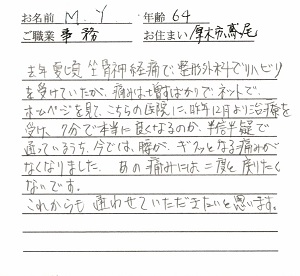 お名前 M.Y 年齢 64
ご職業 事務 お住まい 厚木市鳶尾
去年夏頃坐骨神経痛で整形外科でリハビリ
を受けていたが、痛みは増すばかりでネットで
ホームページを見て、こちらの医院に、昨年12月より治療を
受け、7分で本当に良くなるのか、半信半疑で
通っているうち、今では、腰が、ギクッとなる痛みが
なくなりました。 あの痛みには二度と戻りたく
ないです。
これからも通わせていただきたいと思います。